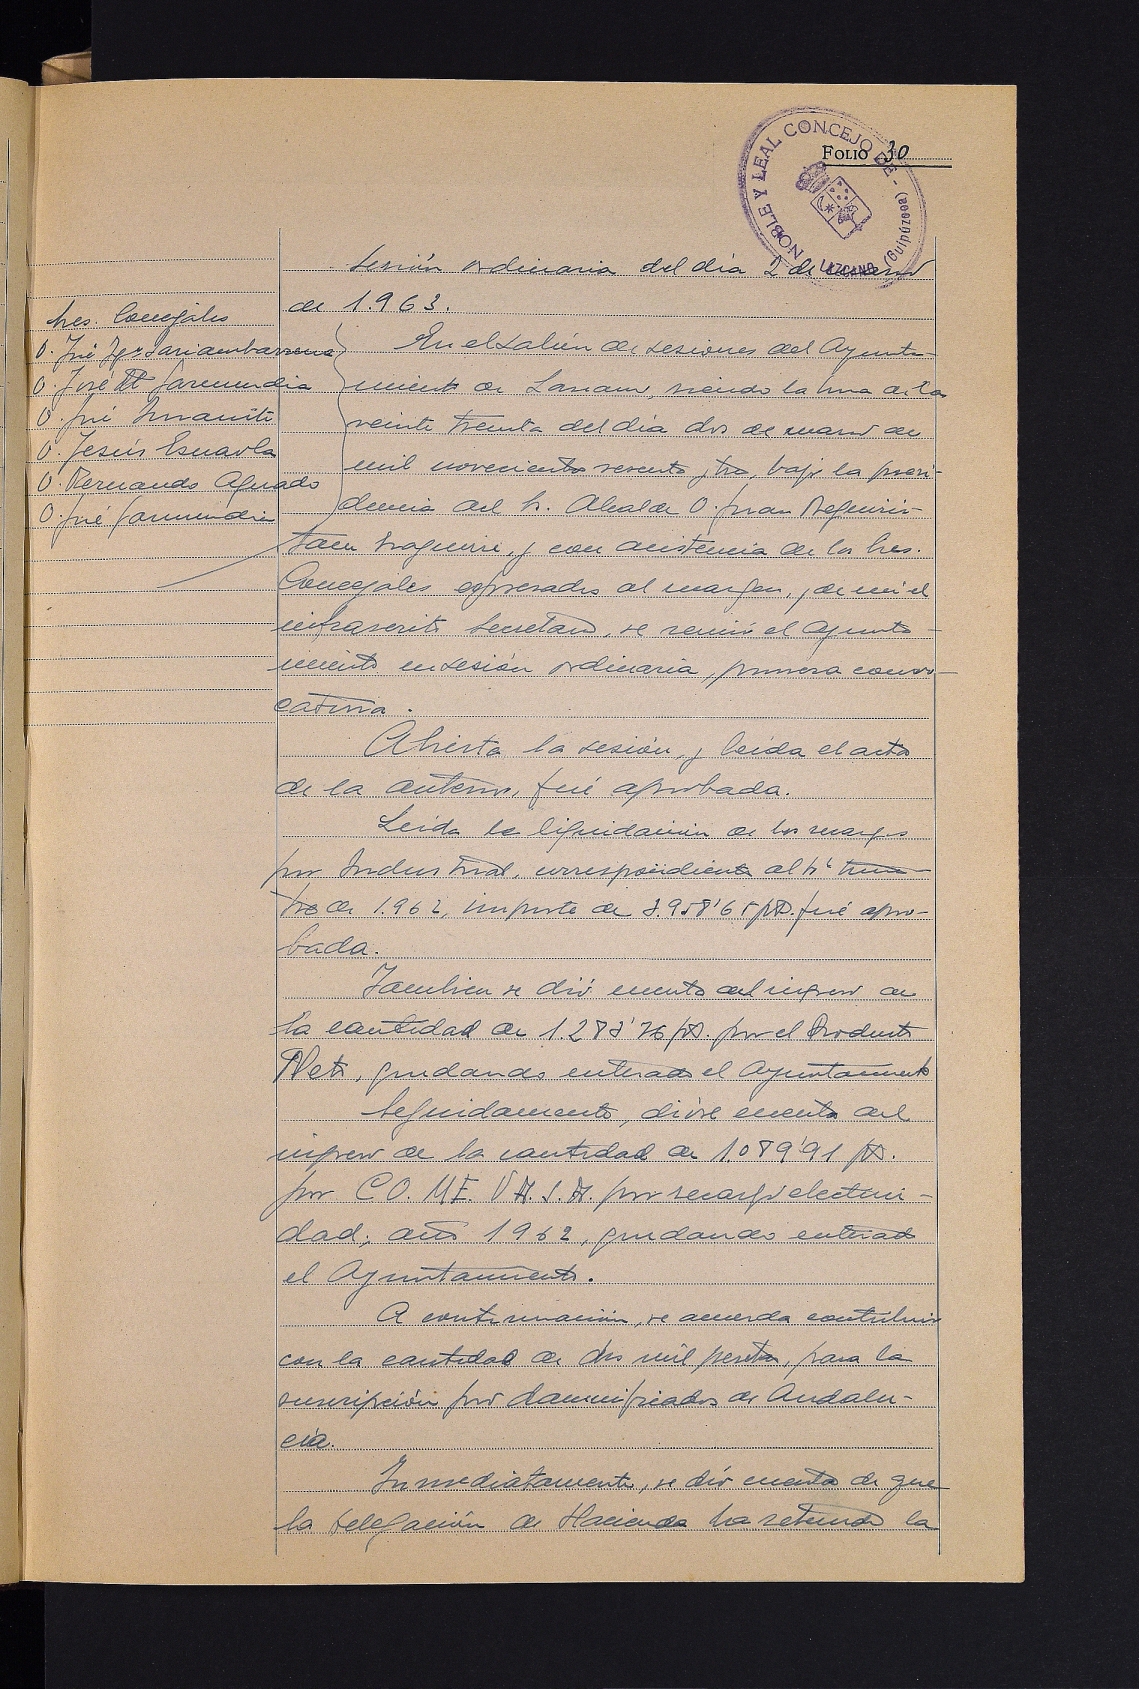 FOLIO 30
NOBLE Y LEAL CONCEJO DE - LAZCANO (Guipúzcoa)
Sesión ordinaria del día 2 de
de 1.963.
Sres. Concejales
D. José Igº Sariambarrena
D. José Mª Garmendia
D. José
D. Jesús Esnaola
D. Fernando Aguado
D. José Garmendia
En el Salón de sesiones del Ayunta-
miento de Lazcano, siendo la hora de las
veinte treinta del día dos de marzo de
mil novecientos sesenta y tres, bajo la presi-
dencia del Sr. Alcalde D. Juan Reguiris-
tain Iraguirre, y con asistencia de los Sres.
Concejales expresados al margen, y de mí el
infrascrito Secretario, se reunió el Ayunta-
miento en sesión ordinaria, primera convo-
catoria.
Abierta la sesión, y leída el acta
de la anterior, fué aprobada.
Leída la liquidación de los recargos
por Industrial, correspondiente al 4º trimes-
tre de 1.962, importe de 3.958'65 pts. fué apro-
bada.
Tambien se dió cuenta del ingreso de
la cantidad de 1.283'76 pts. por el Producto
Neto, quedando enterado el Ayuntamiento
Seguidamente, dióse cuenta del
ingreso de la cantidad de 1.089'91 pts.
por CO. ME. VA. S.A. por recargo electrici-
dad, año 1962, quedando enterado
el Ayuntamiento.
A continuación, se acuerda contribuir
con la cantidad de dos mil pesetas, para la
suscripción pro damnificados de Andalu-
cía.
Inmediatamente, se dió cuenta de que
la Delegación de Hacienda ha retenido la